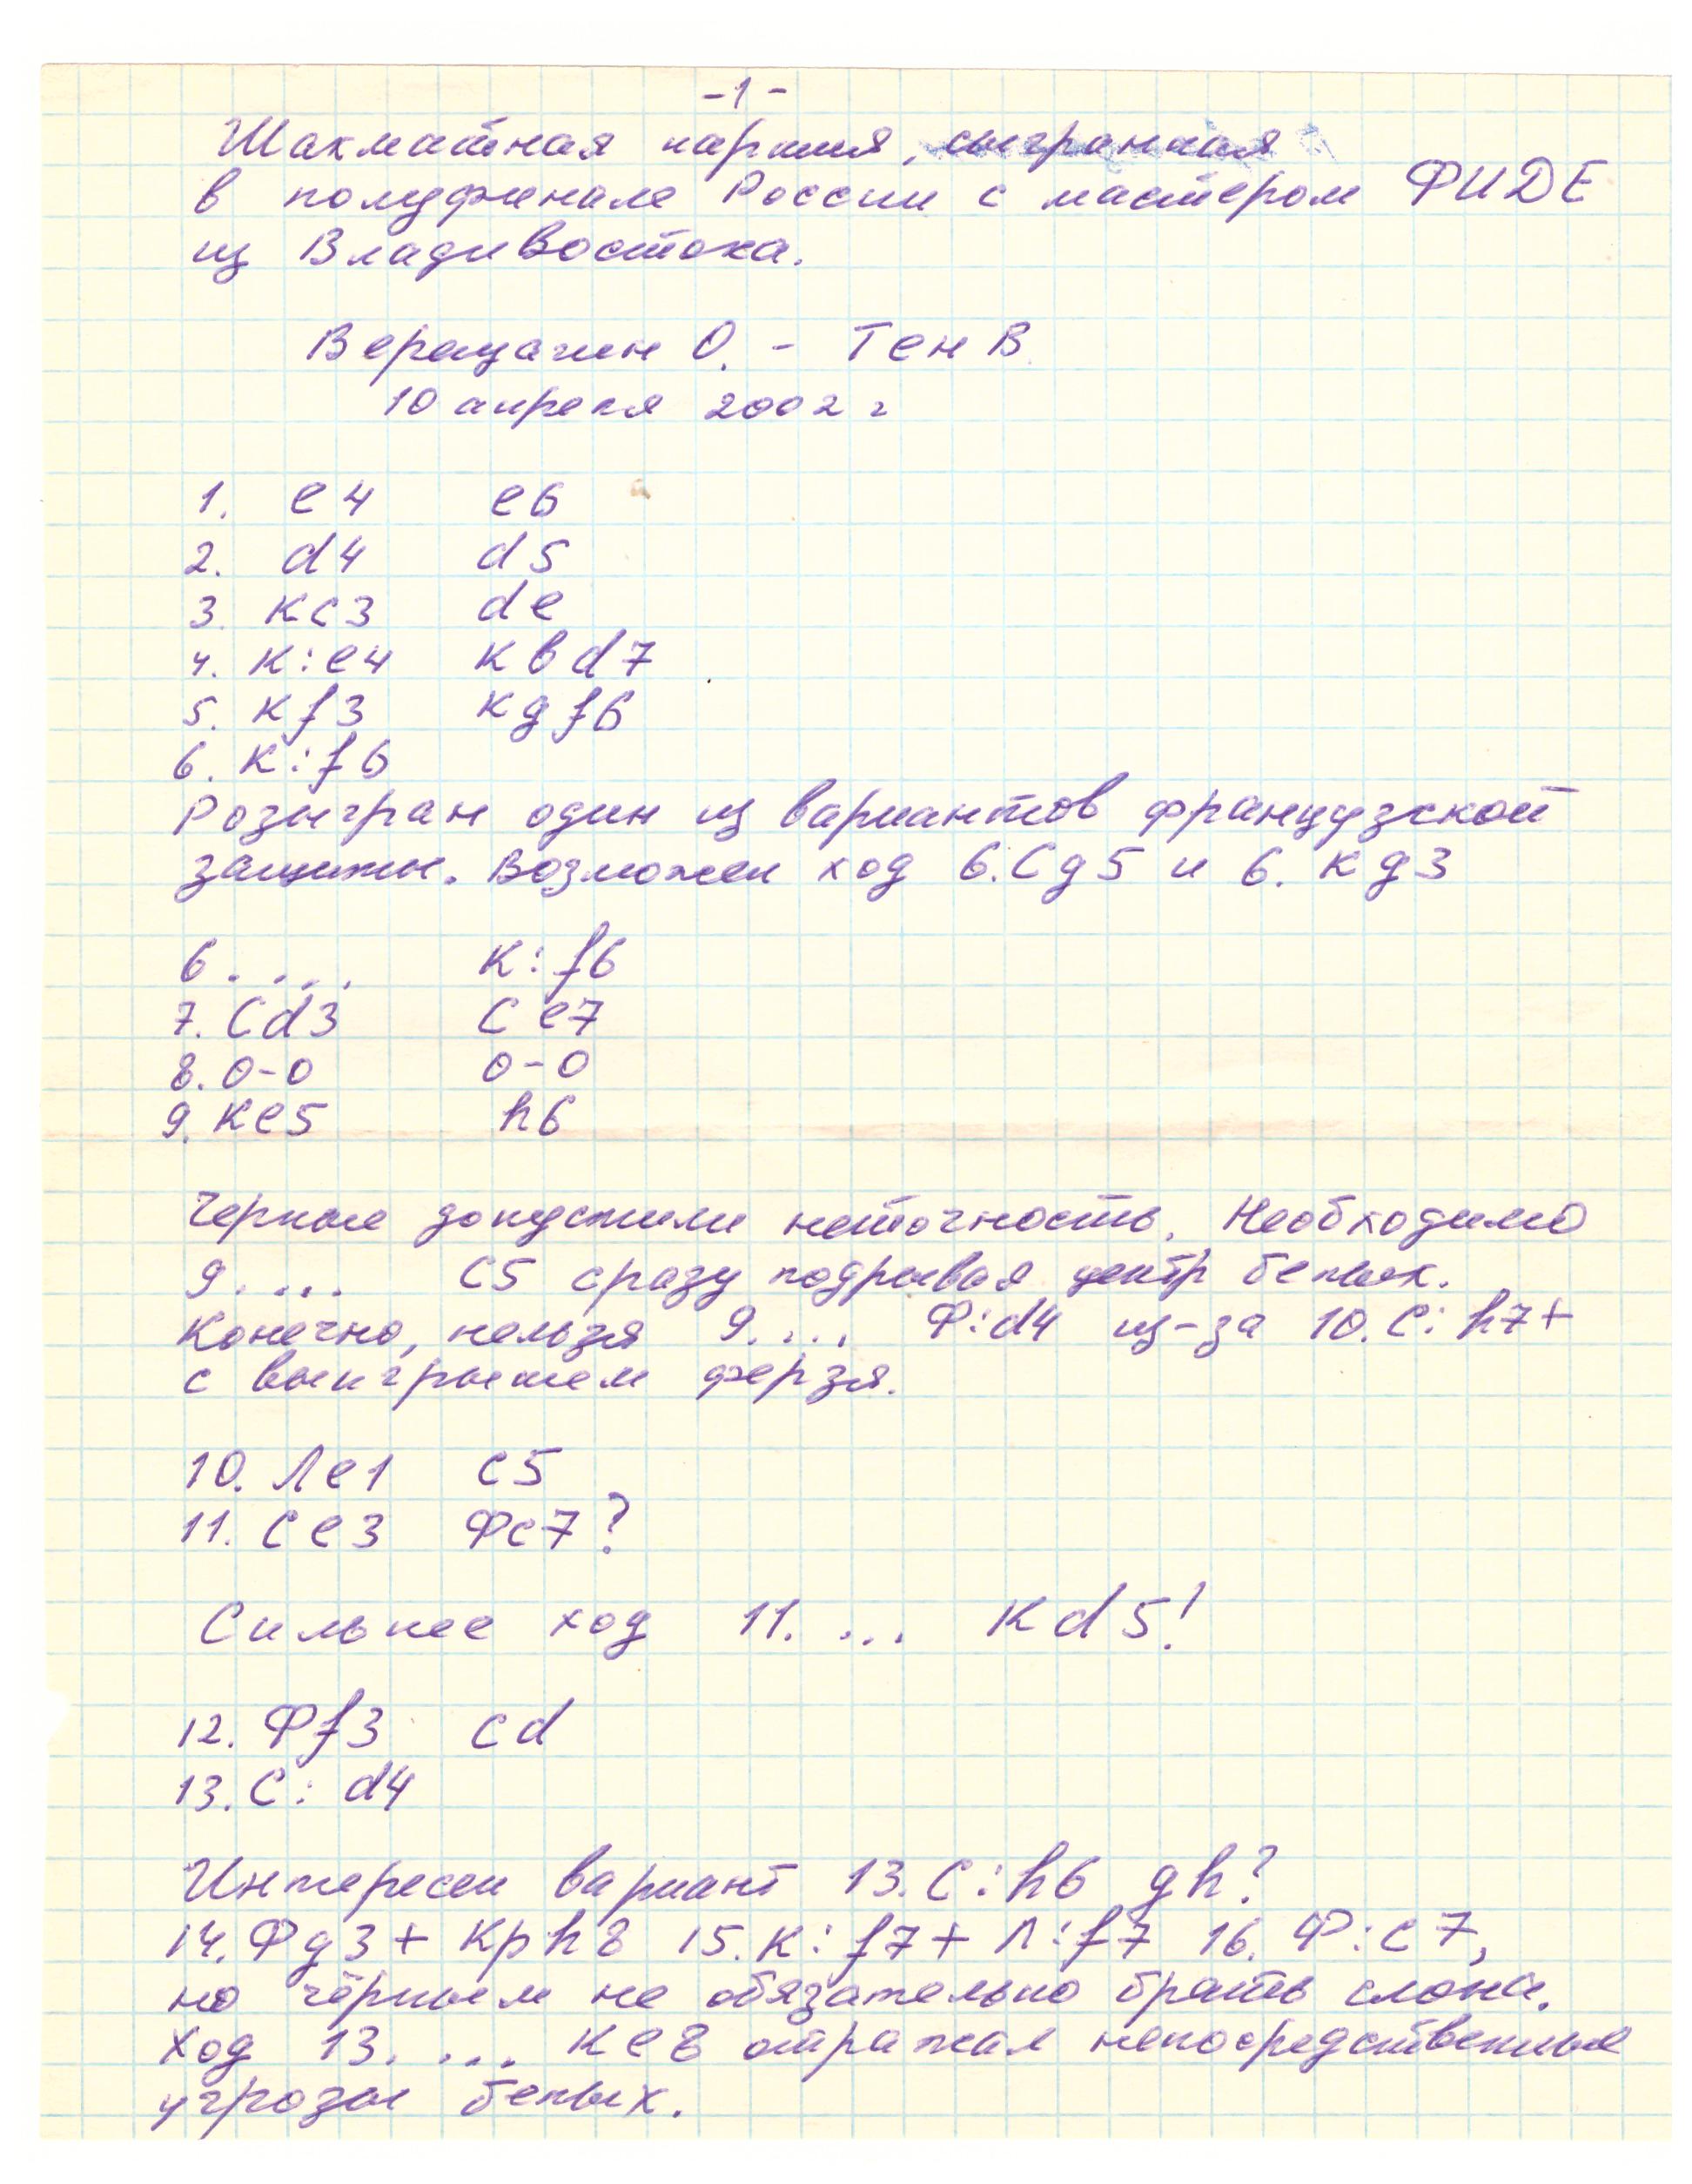 -1-
Шахматная партия, сыгранная
в полуфинале России с мастером ФИДЕ
из Владивостока.
Верещагин О. - Тен В.
10 апреля 2002 г
1. e4 e6
2. d4 d5
3. Kc3 de
4. K:e4 Kbd7
5. Kf3 Kgf6
6. K:f6
Розыгран один из вариантов французской
защиты. Возможен ход 6.Cg5 и 6. Kg3
6. .... K:f6
7. Cd3 Ce7
8. 0-0 0-0
9. Ke5 h6
Черные допустили неточность. Необходимо
9. ... C5 сразу подрывая центр белых.
Конечно, нельзя 9. ... Ф:d4 из-за 10. C:h7+
с выигрышем ферзя.
10. Лe1 c5
11. Ce3 Фc7?
Сильнее ход 11. ... Kd5!
12. Фf3 cd
13. C: d4
Интересен вариант 13. C:h6 gh?
14. Фg3+ Kph8 15. K:f7+ Л:f7 16. Ф:c7,
но чёрным не обязательно брать слона.
Ход 13. ... Ke8 отражал непосредственные
угрозы белых.